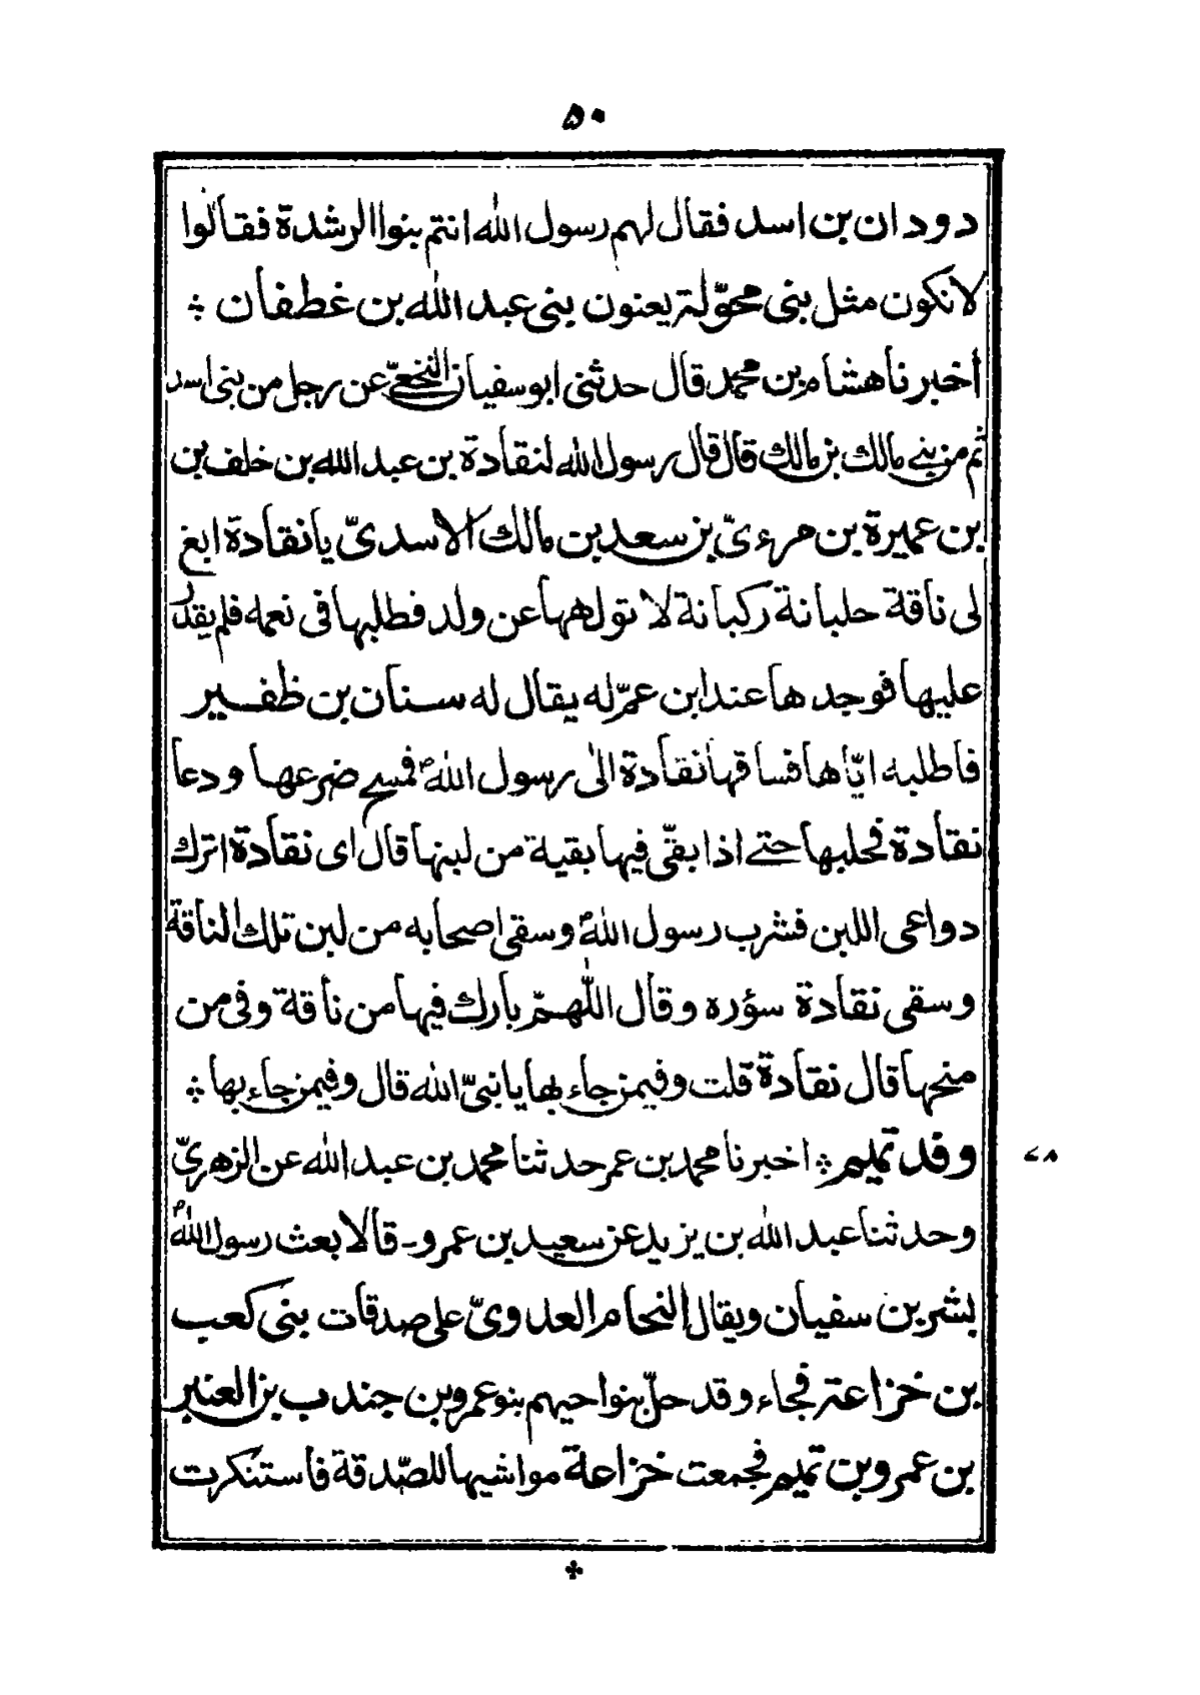 ۵۰
دودان بن اسد فقال لهم رسول الله انتم بنوا الرشدة فقالوا
لا نكون مثل بنى محوّلة يعنون بنى عبد الله بن غطفان ⁘
أخبرنا هشام بن محمد قال حدثنى ابو سفيان النخعىّ عن رجل من بنى اسد
ثم من بنى مالك بن مالك قال قال رسول الله لنقادة بن عبد الله بن خلف بن
بن عميرة بن مرءىّ بن سعد بن مالك الاسدىّ يا نقادة ابغ
لى ناقة حلبانة ركبانة لا تولهها عن ولد فطلبها فى نعمه فلم يقدر
عليها فوجدها عند ابن عمّ له يقال له سنان بن ظفير
فاطلبه ايّاها فساقها نقادة الىٰ رسول اللهؐ فمسح ضرعها ودعا
نقادة فحلبها حتى اذا بقّى فيها بقية من لبنها قال اى نقادة اترك
دواعى اللبن فشرب رسول اللهؐ وسقى اصحابه من لبن تلك الناقة
وسقى نقادة سؤره وقال اللّٰهمّ بارك فيها من ناقة وفى من
منحها قال نقادة قلت وفيمن جاء بها يا نبىّ الله قال وفيمن جاء بها ⁘
وفد تميم ⁘ اخبرنا محمد بن عمر حدثنا محمد بن عبد الله عن الزهرىّ
٧٨
وحدثنا عبد الله بن يزيد عن سعيد بن عمرو ـ قالا بعث رسول اللهؐ
بشر بن سفيان ويقال النحام العدوىّ على صدقات بنى كعب
بن خزاعة فجاء وقد حلّ بنواحيهم بنو عمرو بن جندب بن العنبر
بن عمرو بن تميم فجمعت خزاعة مواشيها للصّدقة فاستنكرت